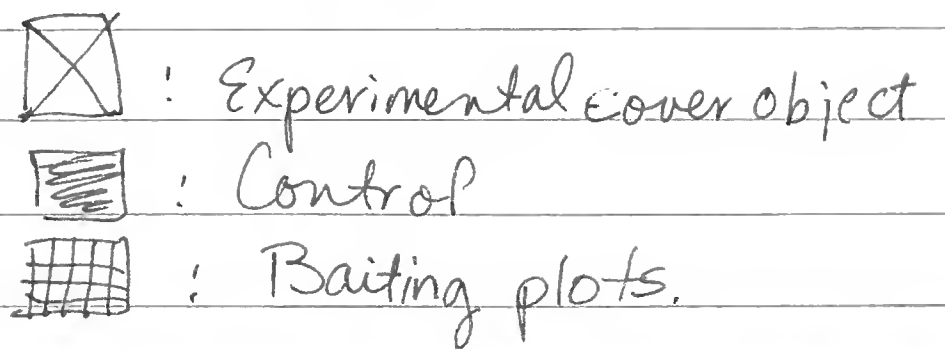 : Experimental cover object
: Control
: Baiting plots.